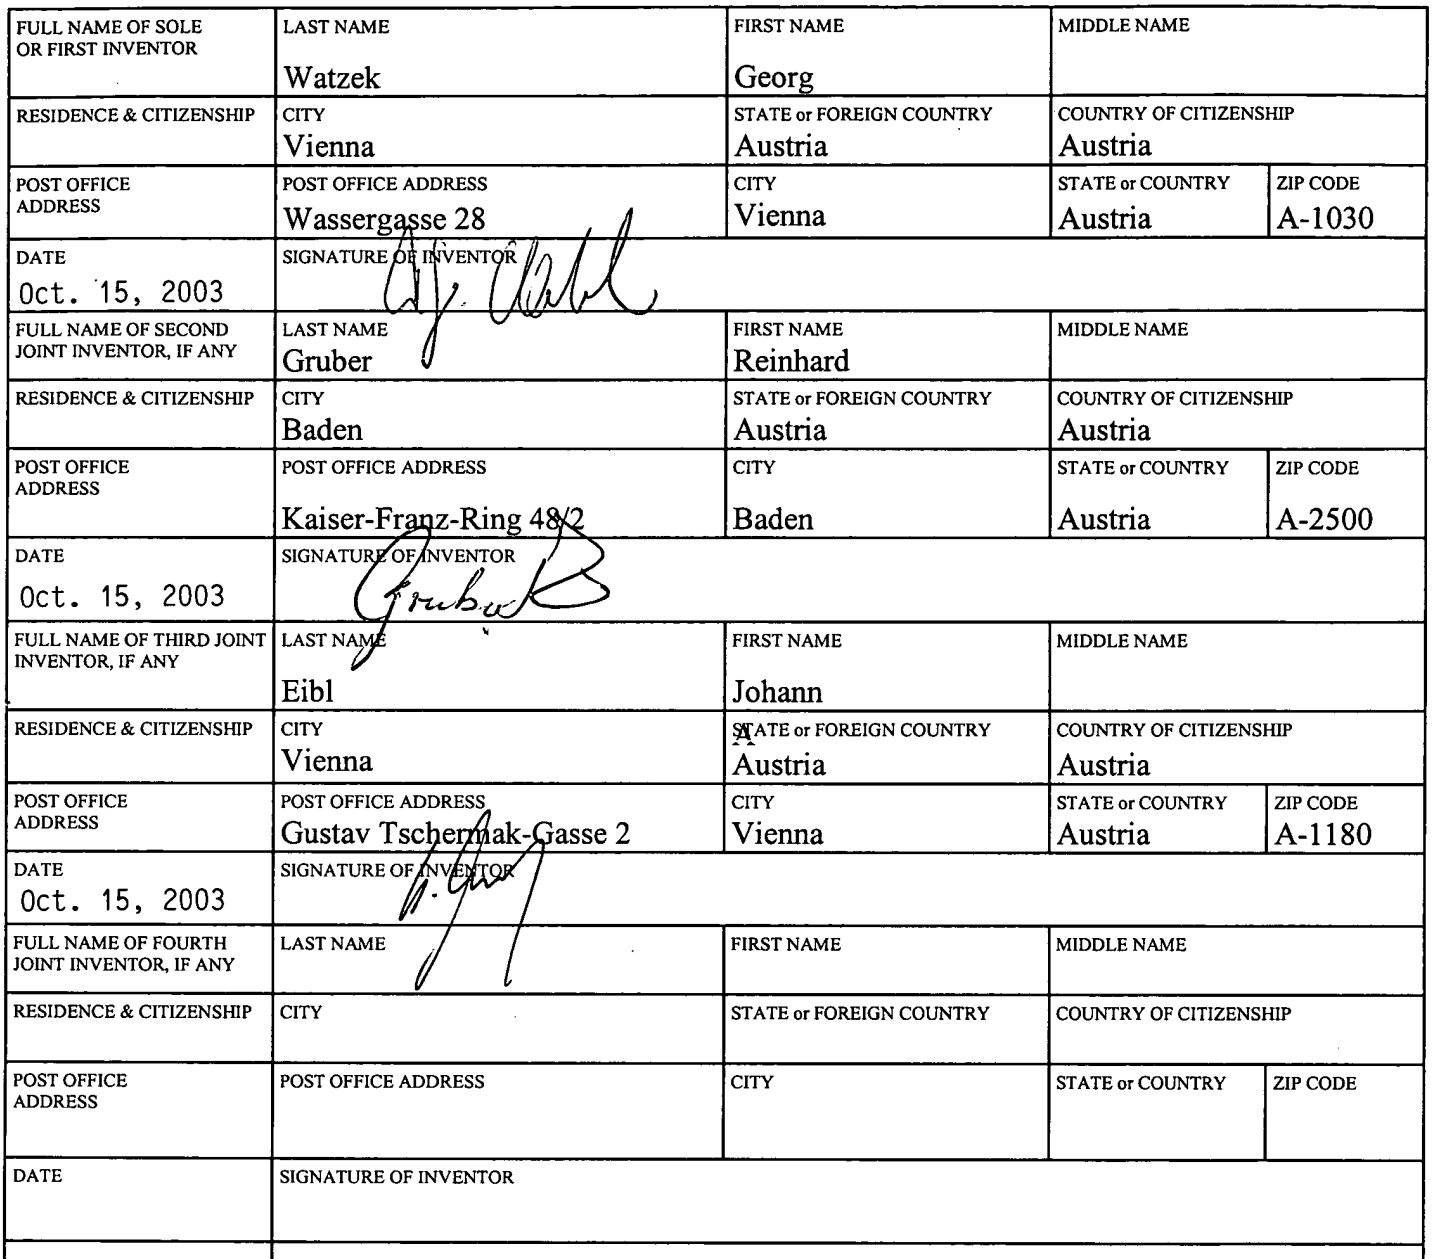 FULL NAME OF SOLE OR FIRST INVENTOR
LAST NAME
Watzek
FIRST NAME
Georg
MIDDLE NAME
RESIDENCE & CITIZENSHIP
CITY
Vienna
STATE or FOREIGN COUNTRY
Austria
COUNTRY OF CITIZENSHIP
Austria
POST OFFICE ADDRESS
POST OFFICE ADDRESS
Wassergasse 28
CITY
Vienna
STATE or COUNTRY
Austria
ZIP CODE
A-1030
DATE
Oct. 15, 2003
SIGNATURE OF INVENTOR
FULL NAME OF SECOND JOINT INVENTOR, IF ANY
LAST NAME
Gruber
FIRST NAME
Reinhard
MIDDLE NAME
RESIDENCE & CITIZENSHIP
CITY
Baden
STATE or FOREIGN COUNTRY
Austria
COUNTRY OF CITIZENSHIP
Austria
POST OFFICE ADDRESS
POST OFFICE ADDRESS
Kaiser-Franz-Ring 48/2
CITY
Baden
STATE or COUNTRY
Austria
ZIP CODE
A-2500
DATE
Oct. 15, 2003
SIGNATURE OF INVENTOR
Gruber
FULL NAME OF THIRD JOINT INVENTOR, IF ANY
LAST NAME
Eibl
FIRST NAME
Johann
MIDDLE NAME
RESIDENCE & CITIZENSHIP
CITY
Vienna
STATE or FOREIGN COUNTRY
Austria
COUNTRY OF CITIZENSHIP
Austria
POST OFFICE ADDRESS
POST OFFICE ADDRESS
Gustav Tschermak-Gasse 2
CITY
Vienna
STATE or COUNTRY
Austria
ZIP CODE
A-1180
DATE
Oct. 15, 2003
SIGNATURE OF INVENTOR
FULL NAME OF FOURTH JOINT INVENTOR, IF ANY
LAST NAME
FIRST NAME
MIDDLE NAME
RESIDENCE & CITIZENSHIP
CITY
STATE or FOREIGN COUNTRY
COUNTRY OF CITIZENSHIP
POST OFFICE ADDRESS
POST OFFICE ADDRESS
CITY
STATE or COUNTRY
ZIP CODE
DATE
SIGNATURE OF INVENTOR